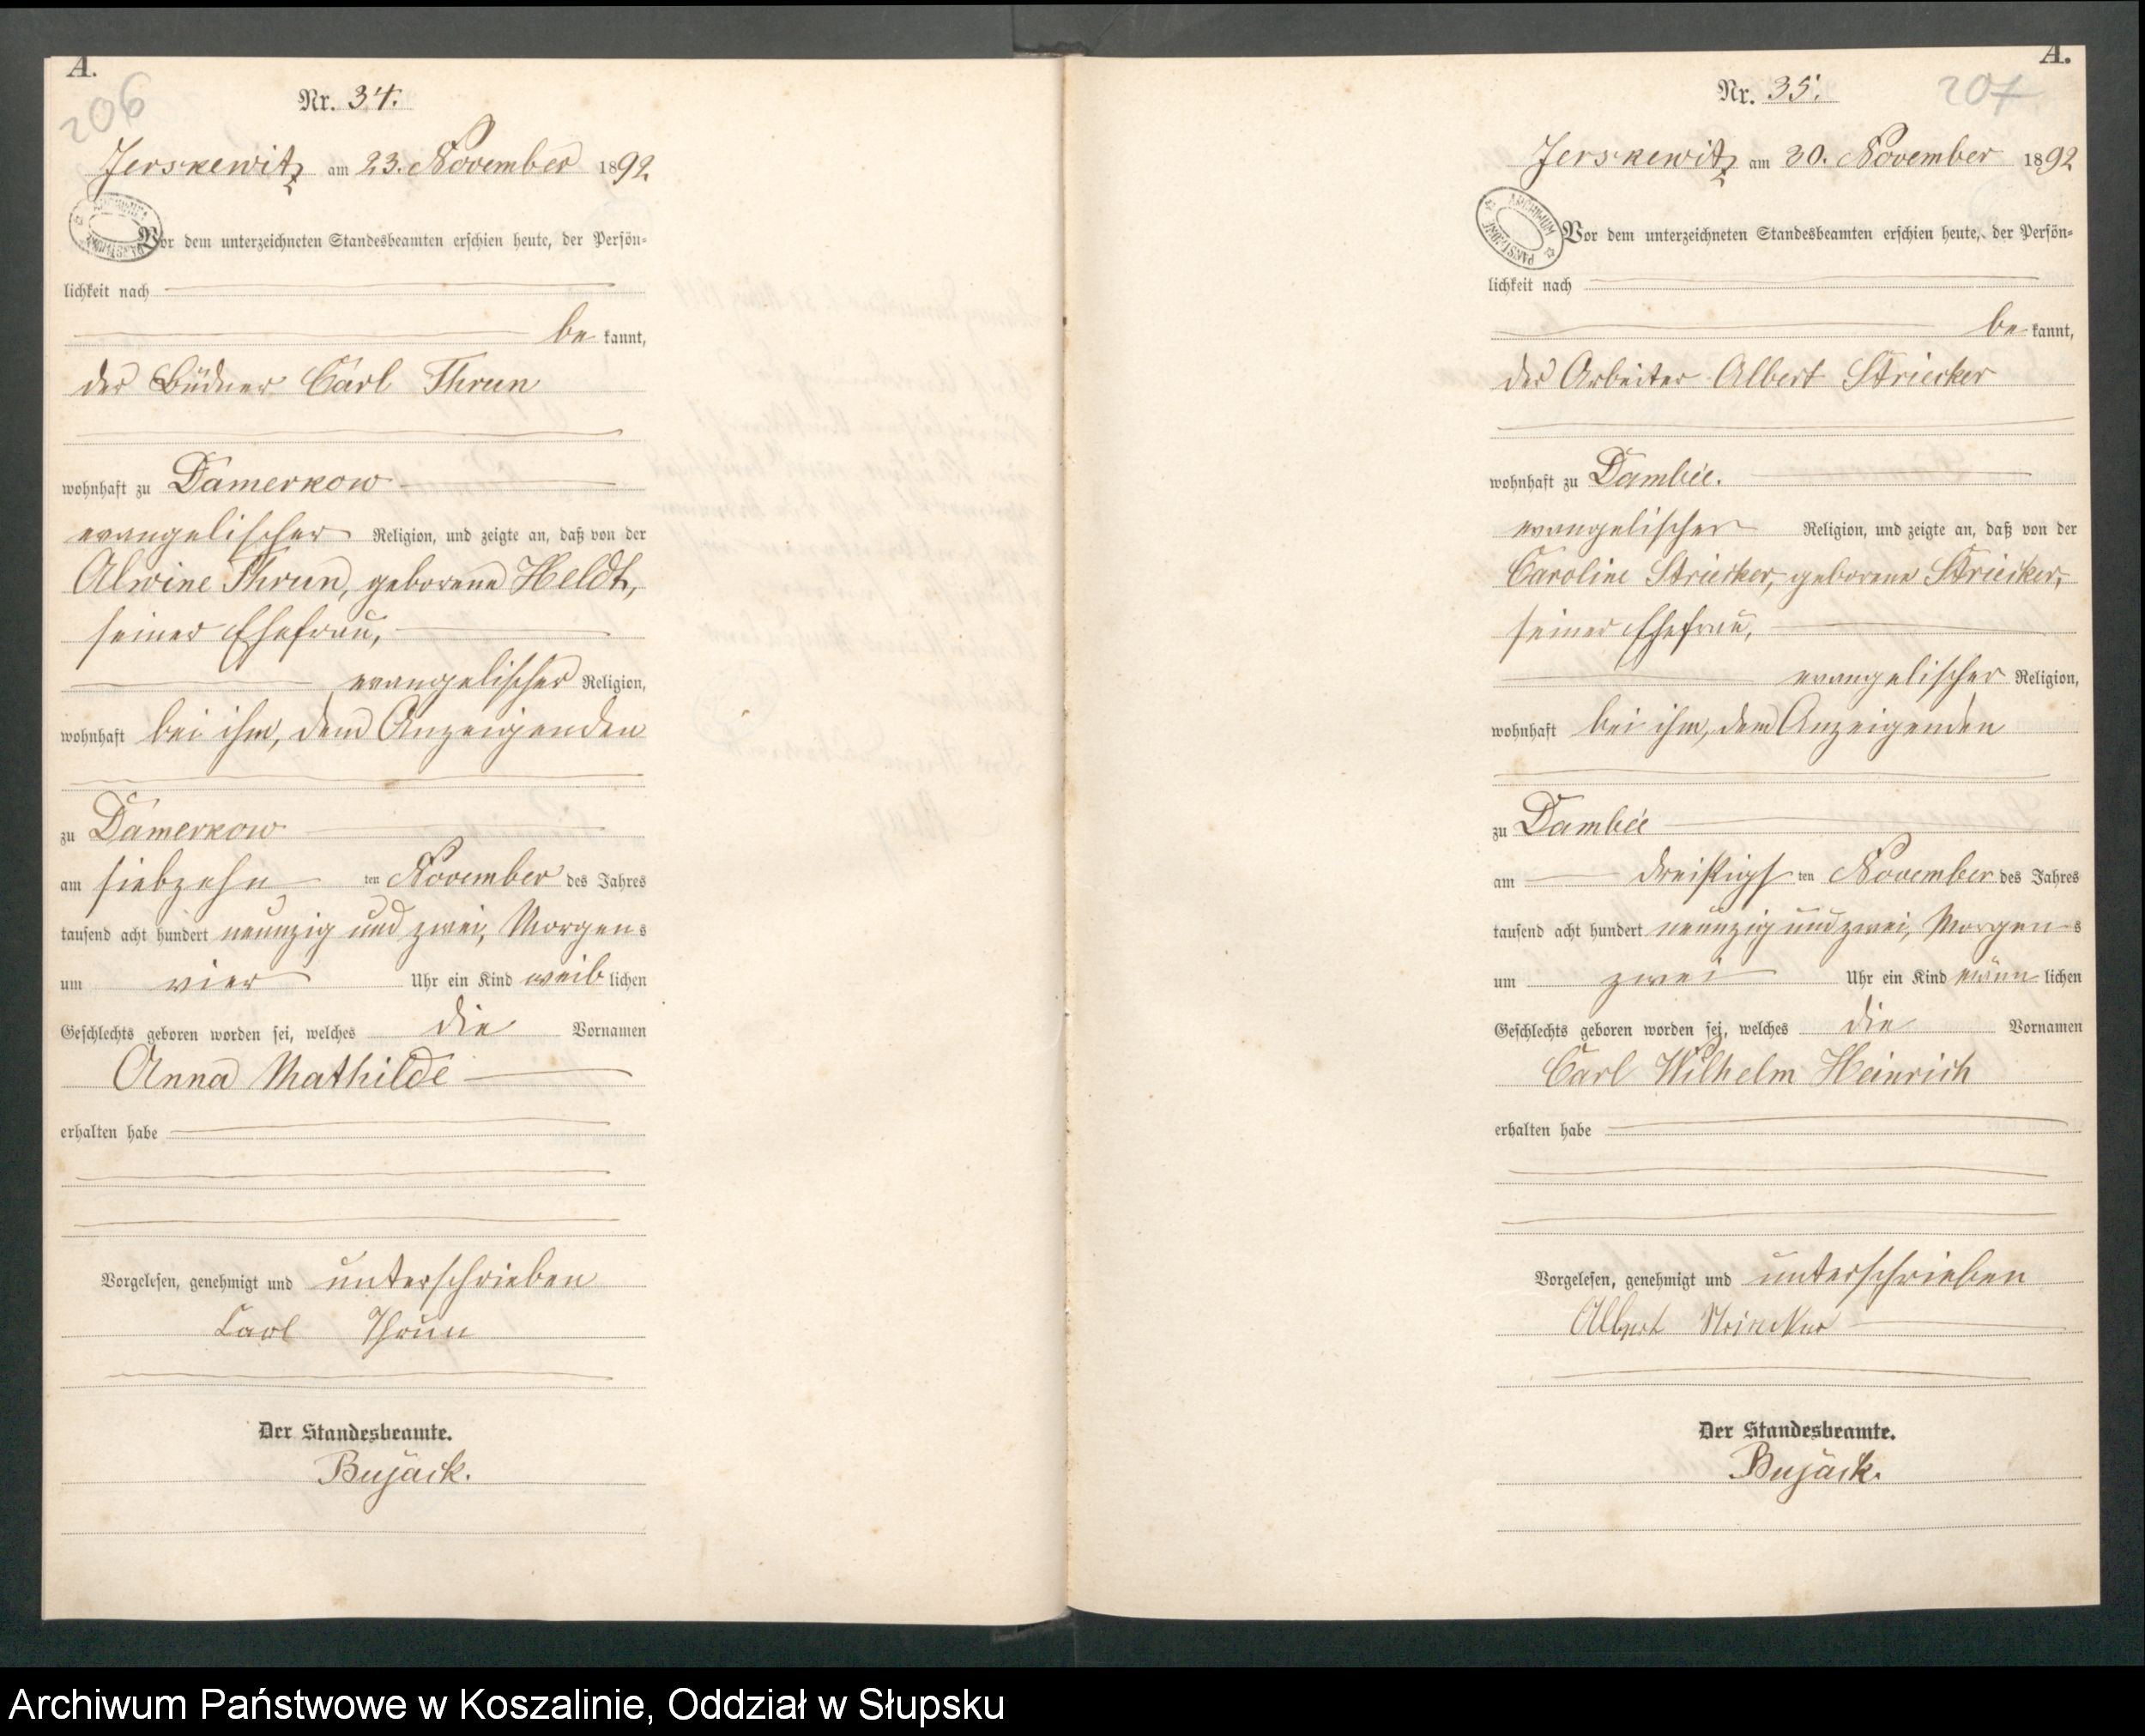 A.
206
Nr. 34.
Jerskewitz am 23. November 1892
Vor dem unterzeichneten Standesbeamten erschien heute, der Persön=
lichkeit nach
be kannt,
der Büdner Carl Thrun
wohnhaft zu Damerkow
evangelischer Religion, und zeigte an, daß von der
Alwine Thrun, geborene Heldt,
seiner Ehefrau,
evangelischer Religion,
wohnhaft bei ihm, dem Anzeigenden
zu Damerkow
am siebzehn ten November des Jahres
tausend acht hundert neunzig und zwei, Morgens
um vier Uhr ein Kind weib lichen
Geschlechts geboren worden sei, welches die Vornamen
Anna Mathilde
erhalten habe
Vorgelesen, genehmigt und unterschrieben
Carl Thrun
Der Standesbeamte.
Bujack.
A.
207
Nr. 35.
Jerskewitz am 30. November 1892
ARCHIWUM PAŃSTWOWE
Vor dem unterzeichneten Standesbeamten erschien heute, der Persön=
lichkeit nach
be kannt,
der Arbeiter Albert Striecker
wohnhaft zu Dambee.
evangelischer Religion, und zeigte an, daß von der
Caroline Striecker, geborene Striecker,
seiner Ehefrau,
evangelischer Religion,
wohnhaft bei ihm, dem Anzeigenden
zu Dambee
am dreißigst ten November des Jahres
tausend acht hundert neunzig und zwei, Morgens
um zwei Uhr ein Kind männ lichen
Geschlechts geboren worden sei, welches die Vornamen
Carl Wilhelm Heinrich
erhalten habe
Vorgelesen, genehmigt und unterschrieben
Albert Striecker
Der Standesbeamte.
Bujack.
Archiwum Państwowe w Koszalinie, Oddział w Słupsku